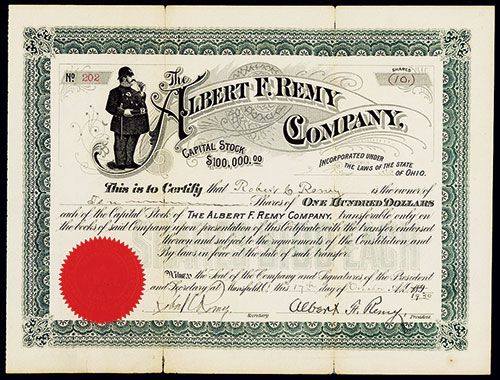 No 202
SHARES
(10)
The
ALBERT F. REMY
COMPANY,
CAPITAL STOCK
$100,000.00
INCORPORATED UNDER
THE LAWS OF THE STATE
OF OHIO.
This is to Certify that Robert C Remy is the owner of
Ten Shares of ONE HUNDRED DOLLARS
each of the Capital Stock of THE ALBERT F. REMY COMPANY, transferable only on
the books of said Company upon presentation of this Certificate with the transfer endorsed
thereon and subject to the requirements of the Constitution and
By-laws in force at the date of such transfer.
Witness the Seal of the Company and Signatures of the President
and Secretary at Mansfield O. this 17th day of A.D.
1920
Secretary
Albert F. Remy
President